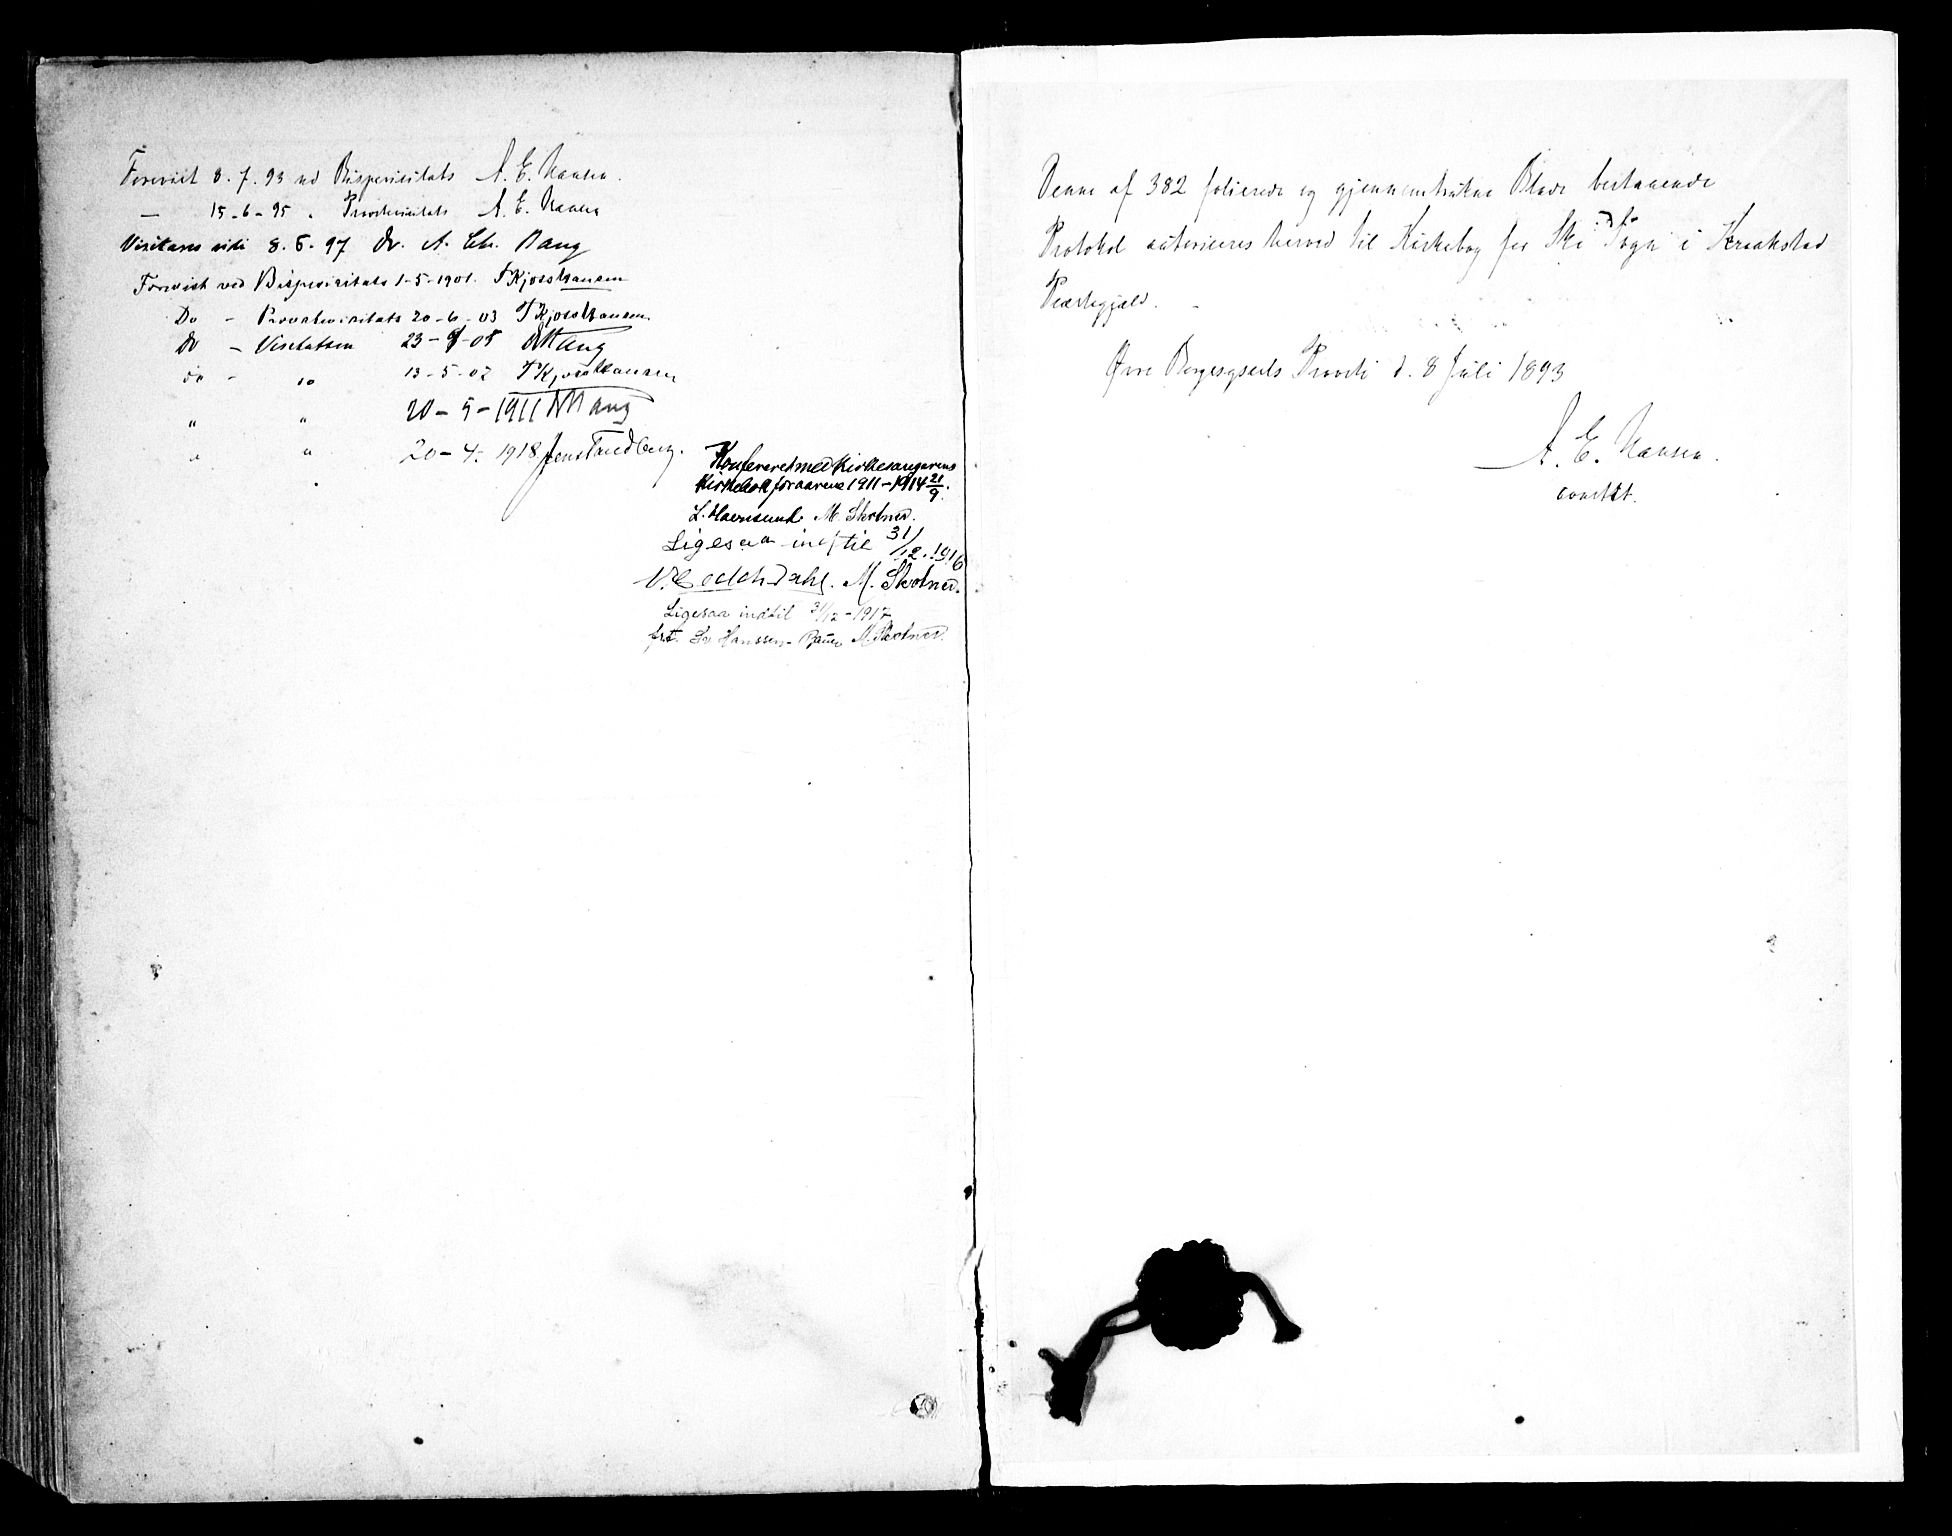 Forevist 8.7.93 ved Bispevisitats A. E. Hansen.
— 15-6-95 " Provstevisitats A. E. Hansen
Visitans vidi 8.5.97 Dr. A. Chr. Bang
Forevist ved Bispevisitats 1-5-1901. T Kjoss Hansen
Do - Provstevisitats 20-6-03 T Kjoss Hansen
Do - Visitatsen 23- -05 Bang
do - do 13-5-07 T Kjoss Hansen
" " 20-5-1911 Bang
" " 20-4-1918 Jens Tandberg.
Konfereret med Kirkesangerens
Kirkebok for aarene 1911-1914 21/9.
L. M. Skotner.
Ligesaa indtil 31/12.1916
M. Skotner.
Ligesaa indtil 31/12-1917
Hanssen- M. Skotner.
Denne af 382 folierede og gjennemtrukne Blade bestaaende
Protokol autoriseres herved til Kirkebog for Ski Sogn i Kraakstad
Præstegjæld.
Øvre Borgesyssels Provsti d. 8 Juli 1893
A. E. Hansen.
constit.